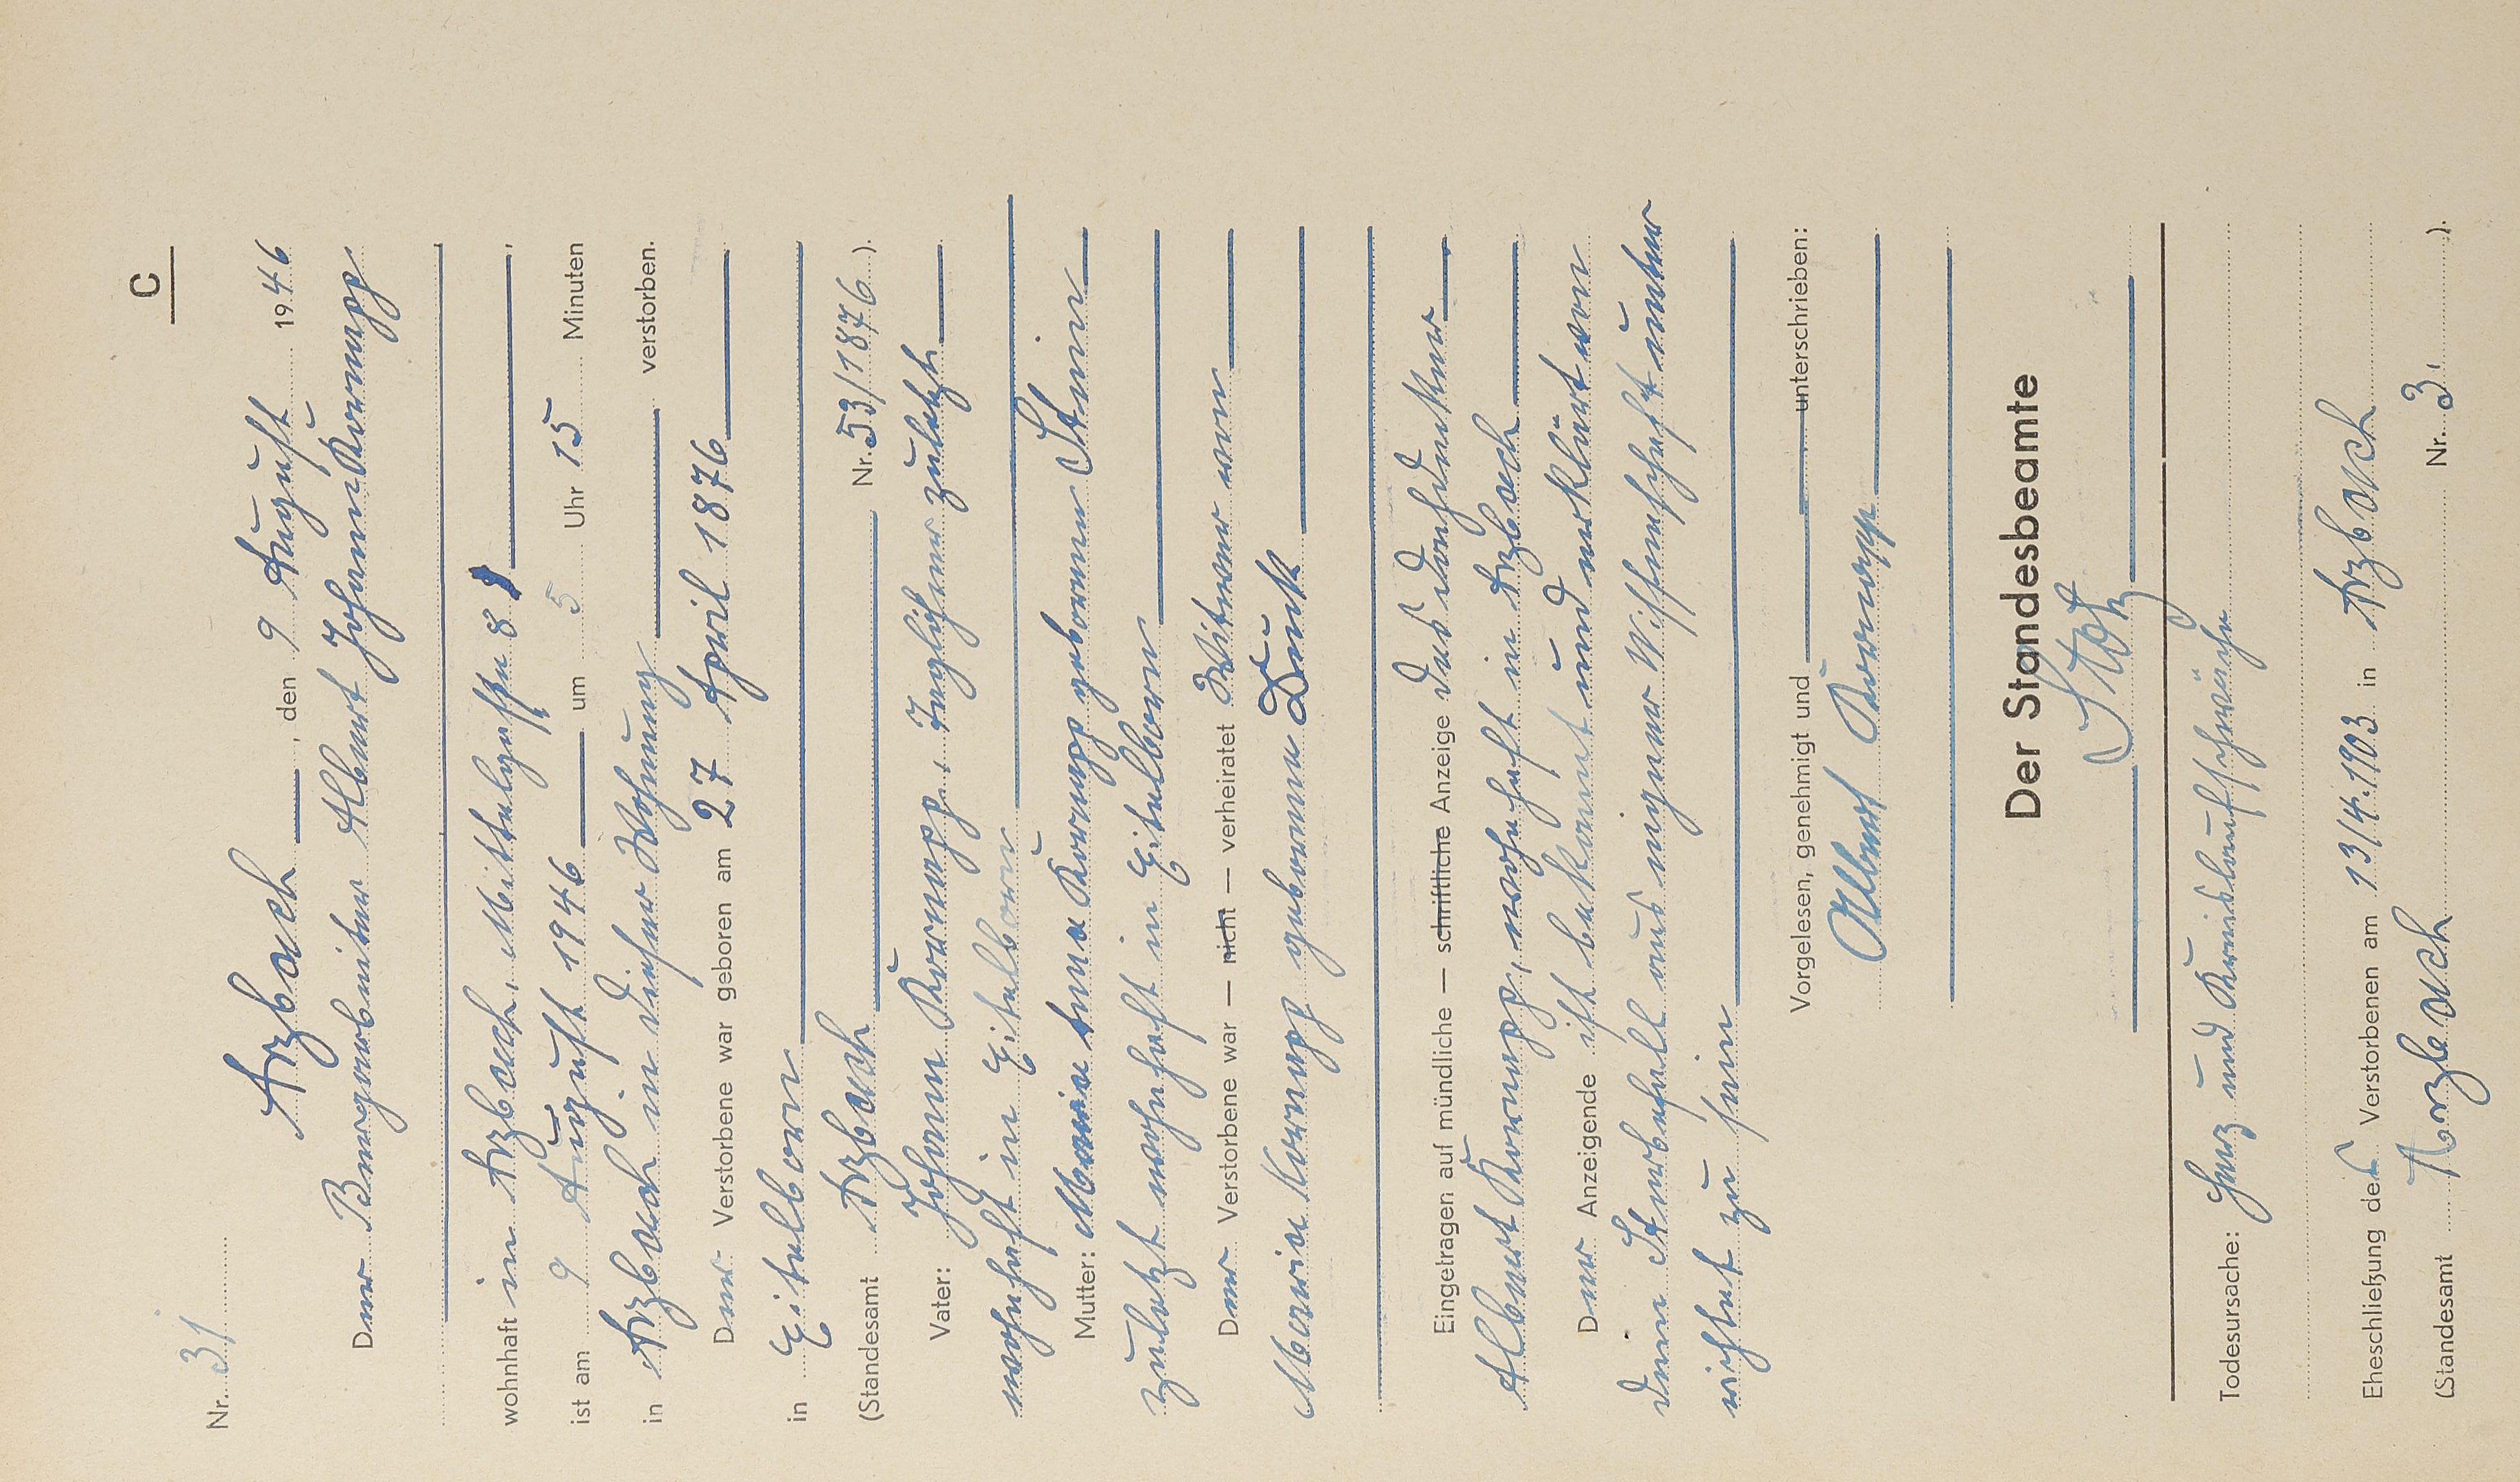 C
Nr. 31
Arzbach, den 9 August 1946
Der Bergarbeiter Albert Johann Knopp
wohnhaft in Arzbach, Mittelgasse 8,
ist am 9 August 1946 um 5 Uhr 15 Minuten
in Arzbach in dieser Wohnung verstorben.
Der Verstorbene war geboren am 27 April 1876
in Eitelborn
(Standesamt Arzbach Nr. 53/1876).
Vater: Johann Knopp, Taglöhner zuletzt
wohnhaft in Eitelborn
Mutter: Maria Anna Knopp geborenen Stein
zuletzt wohnhaft in Eitelborn
Der Verstorbene war — nicht — verheiratet Witwer von
Maria Knopp geborenen
Eingetragen auf mündliche — schriftliche Anzeige des
Albert Knopp, wohnhaft in Arzbach
Der Anzeigende ist bekannt und erklärt von
dem Sterbefall aus eigener Wissenschaft unter
richtet zu sein
Vorgelesen, genehmigt und unterschrieben:
Albert Knopp
Der Standesbeamte
Stotz
Todesursache: Herz und Kreislaufschwäche
Eheschließung des Verstorbenen am 13/4.1903 in Arzbach
(Standesamt Arzbach Nr. 3).